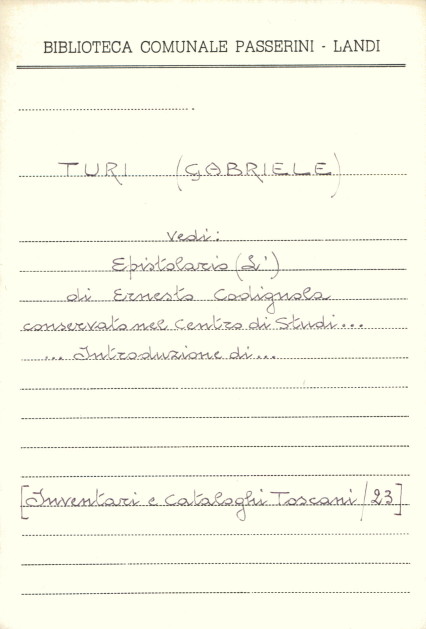 BIBLIOTECA COMUNALE PASSERINI - LANDI
TURI (GABRIELE)
Vedi:
Epistolario (L')
di Ernesto Codignola
conservato nel Centro di Studi...
... Introduzione di...
[Inventari e Cataloghi Toscani / 23]